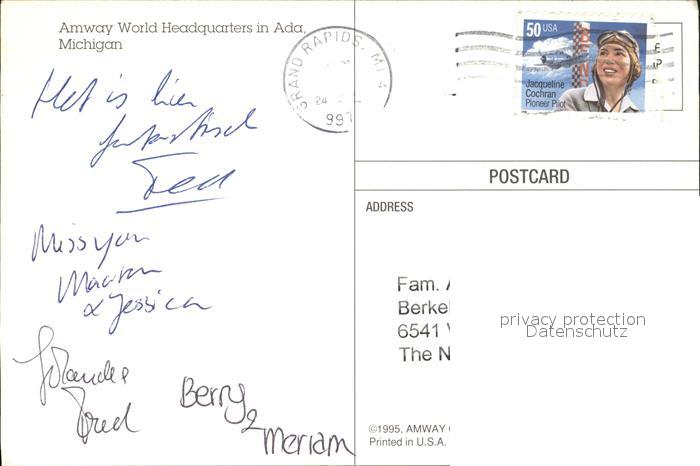 Amway World Headquarters in Ada,
Michigan
Het is hier
fantastisch
Fred
Miss you
& Jessica
Yolanda
Fred
Berry
&
Merriam
GRAND RAPIDS, MI 4
24
1997
50 USA
Jacqueline
Cochran
Pioneer Pilot
POSTCARD
ADDRESS
Fam.
Berkel
6541
The N
privacy protection
Datenschutz
©1995, AMWAY
Printed in U.S.A.